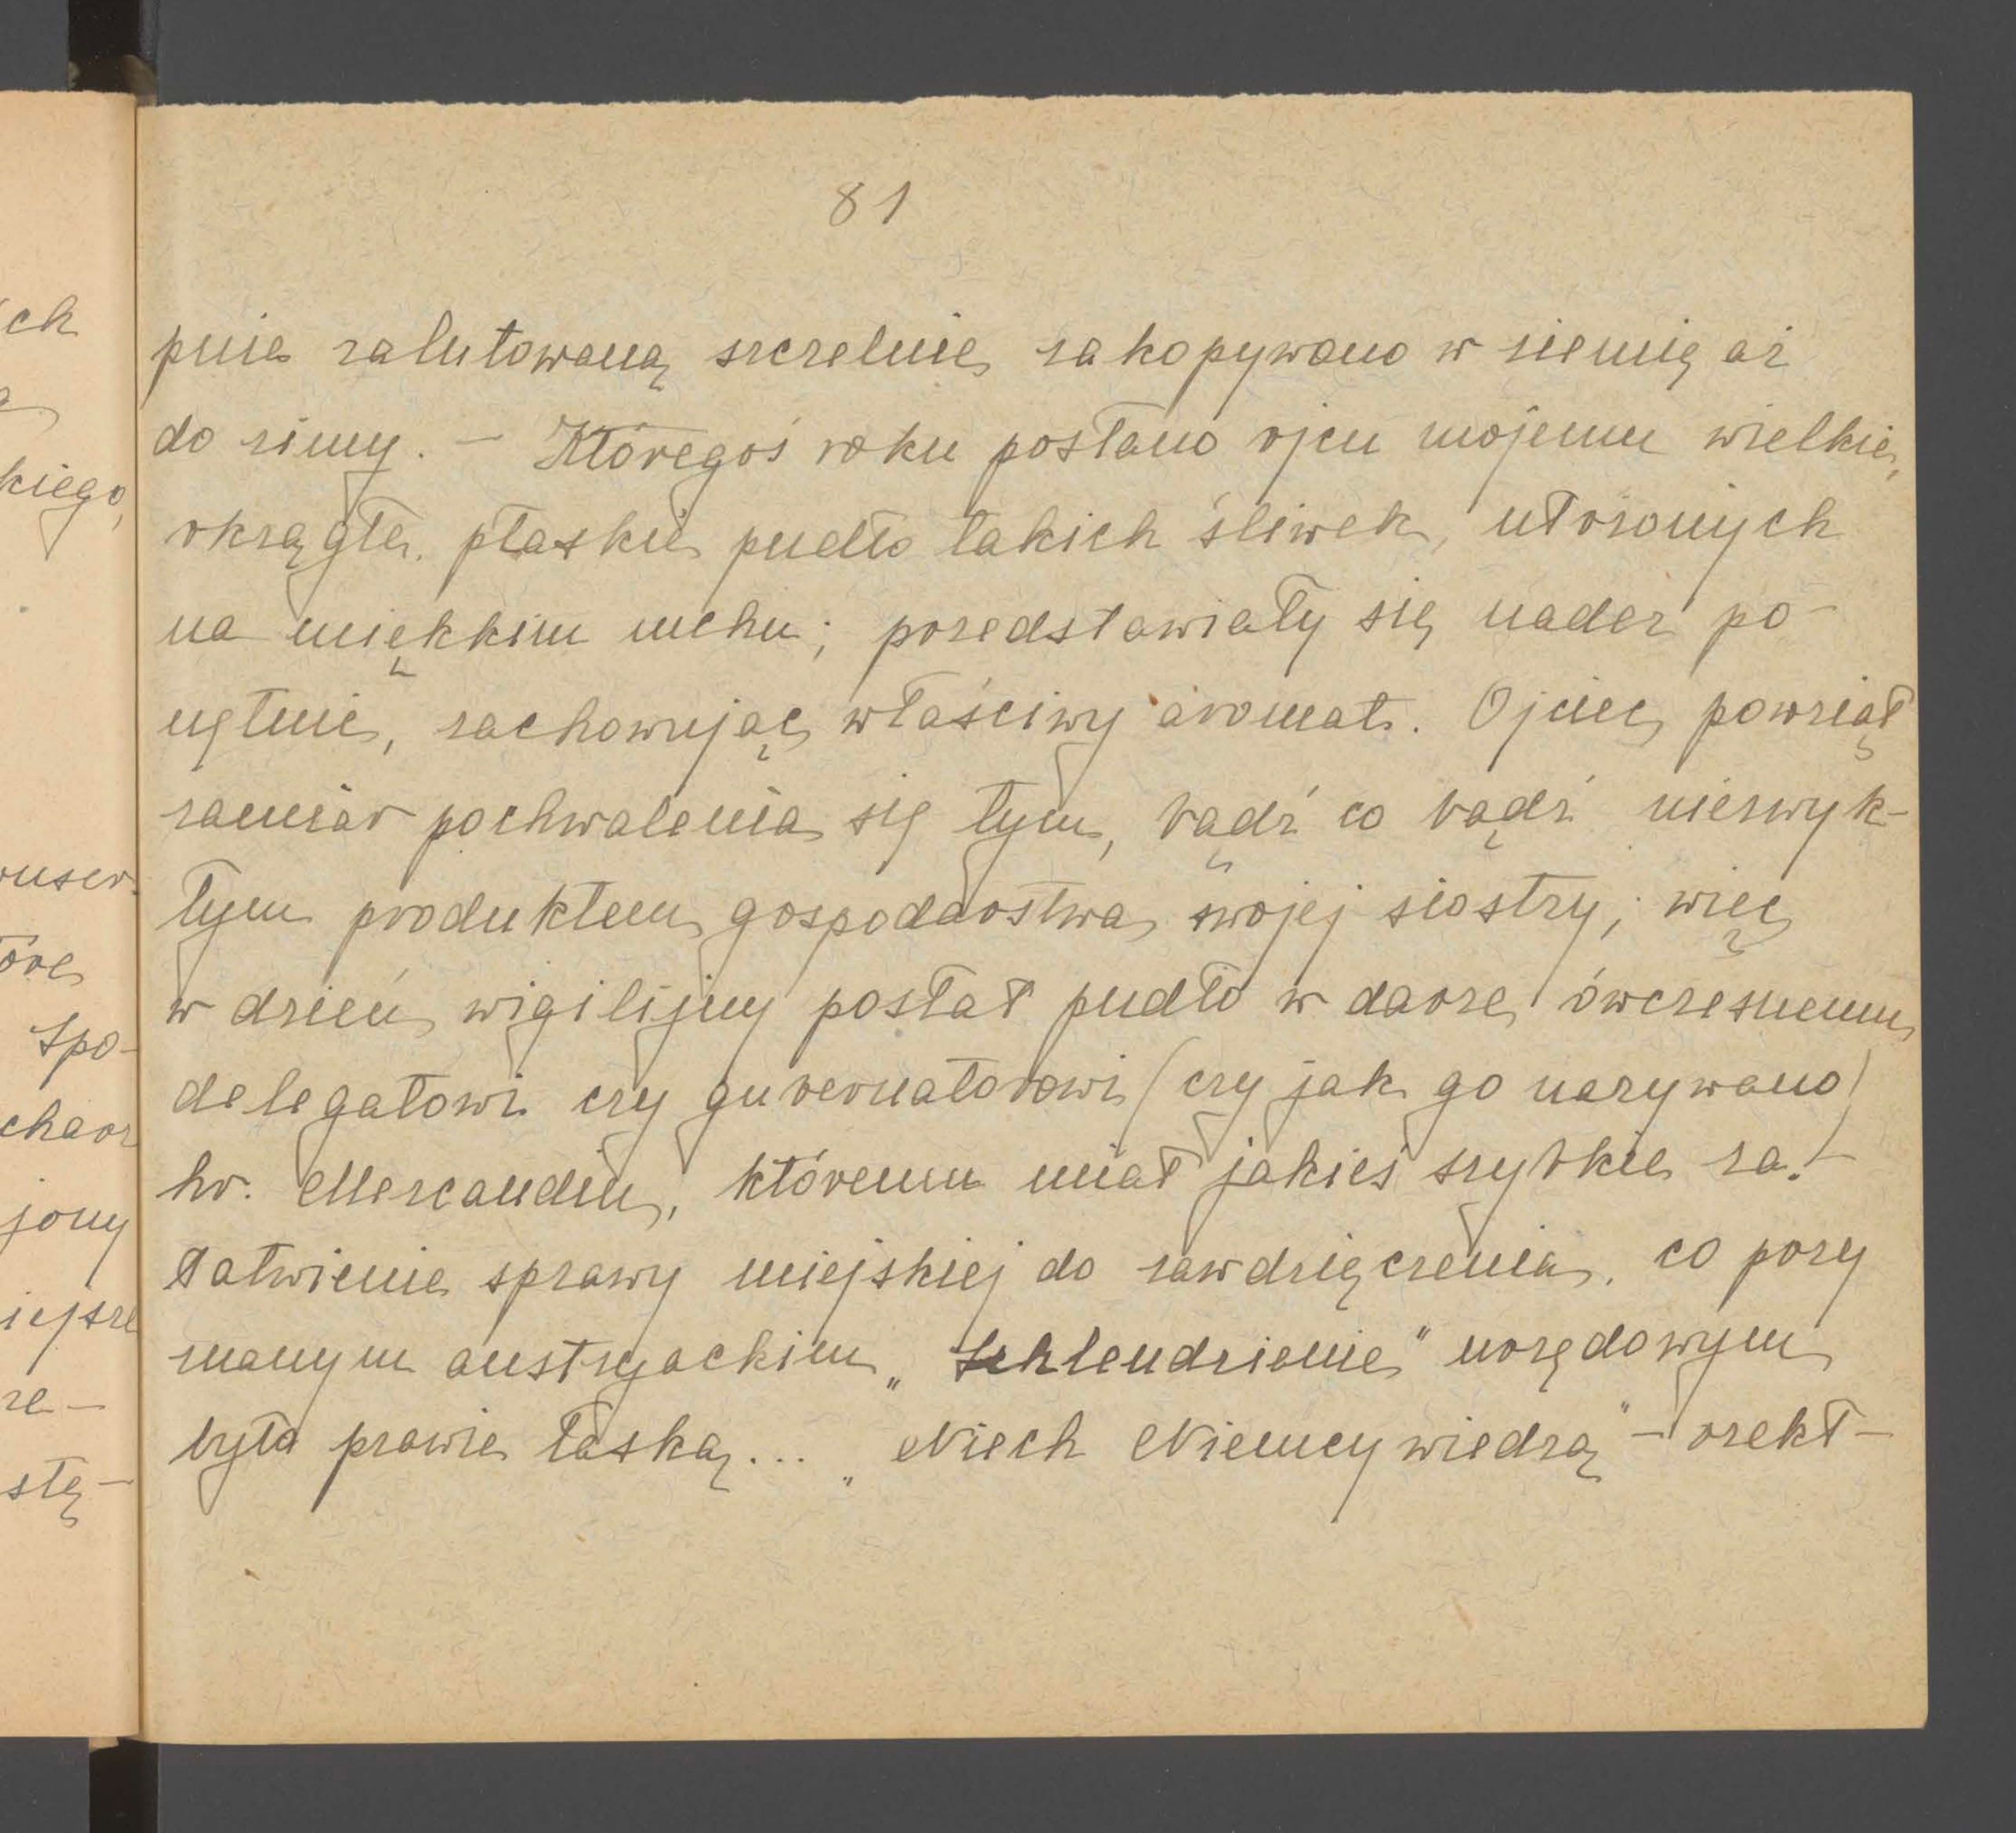 81
pnie zalutowaną szczelnie zakopywano w ziemię aż
do zimy. — Któregoś roku posłano ojcu mojemu wielkie,
okrągłe, płaskie pudło takich śliwek, ułożonych
na miękkim mchu; przedstawiały się nader po-
nętnie, zachowując właściwy aromat. Ojciec powziął
zamiar pochwalenia się tym, bądź co bądź niezwyk-
łym produktem gospodarstwa swojej siostry; więc
w dzień wigilijny posłał pudło w darze ówczesnemu
delegatowi czy gubernatorowi (czy jak go nazywano)
hr. Merscandin, któremu miał jakieś szybkie za-
łatwienie sprawy miejskiej do zawdzięczenia, co przy
znanym austryackim „Schlendrianie" urzędowym
było prawie łaską... „Niech Niemcy wiedzą" — rzekł —
ich
kiego,
óre
Spo-
jony
iejsze
ze —
stę-